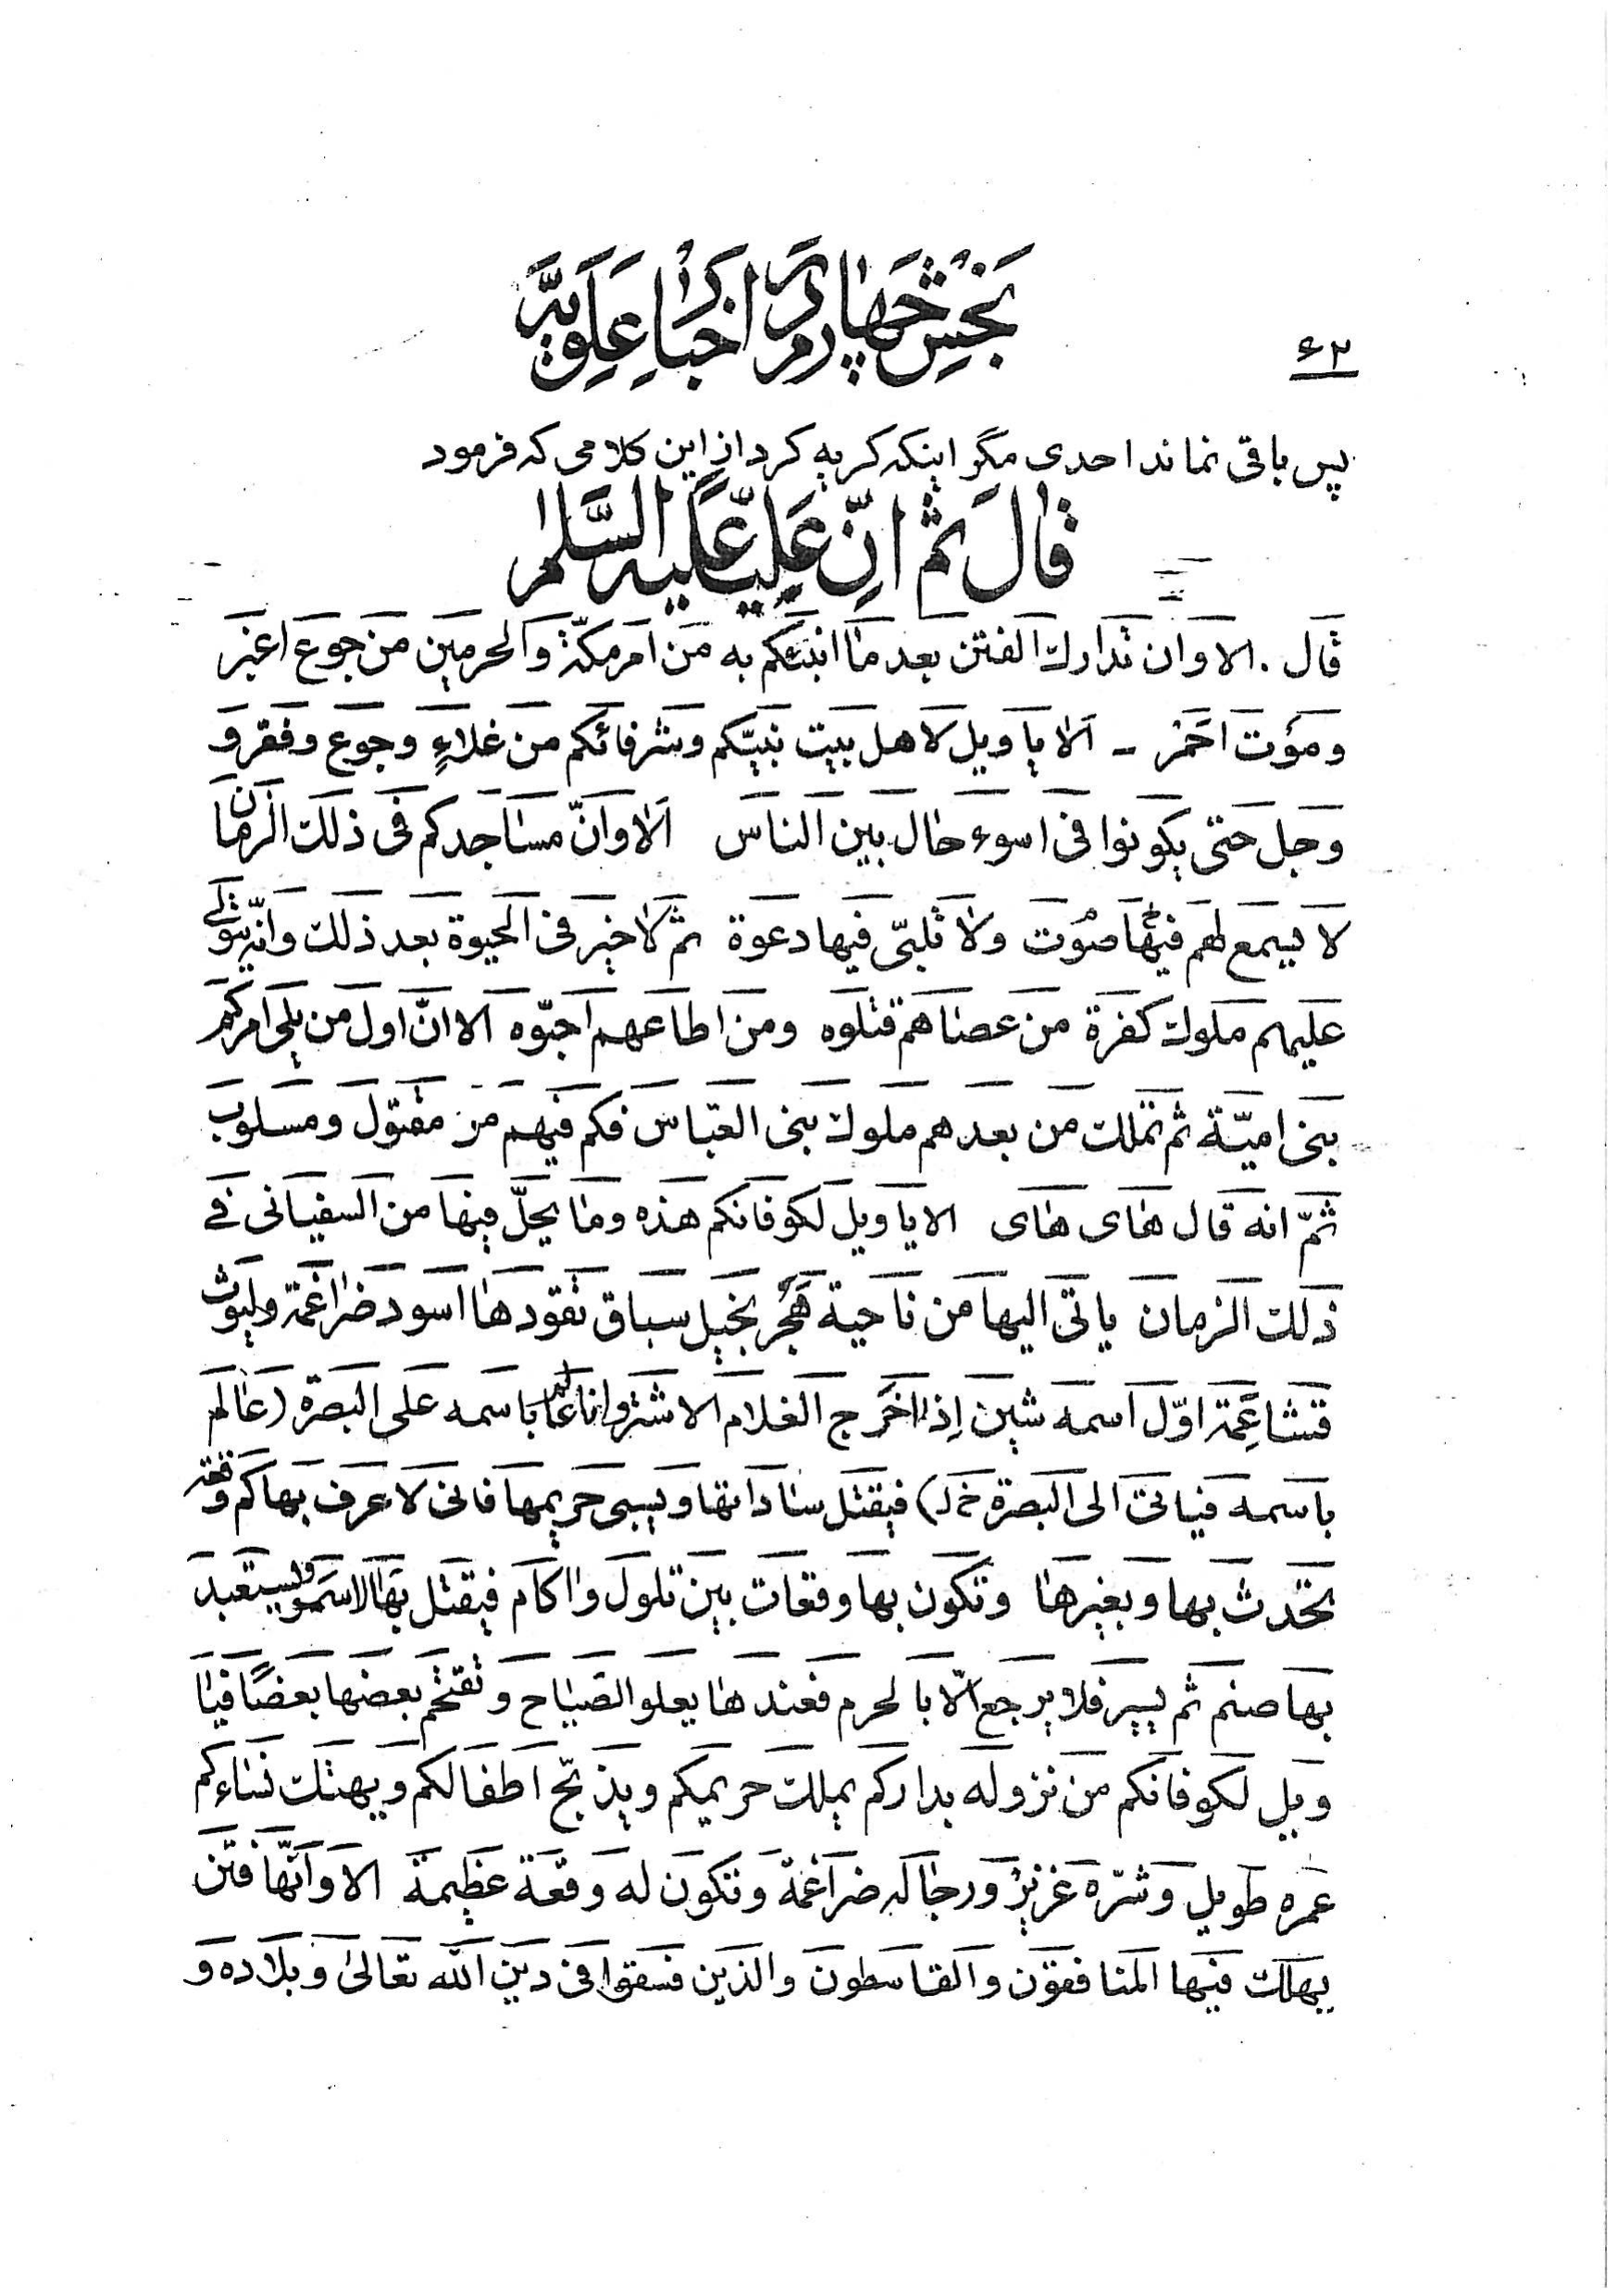 بخش چهارم در اخبار علویه
۶۲
پس باقی نماند احدی مگر اینکه گریه کرد از این کلامی که فرمود
قال ثم انّ علیّاً علیه السّلم
قال. الا وان تدارك الفتن بعد ما انبئکم به من امر مکّة والحرمین من جوع اغبر
وموت احمر - ألا یا ویل لاهل بیت نبیّکم وشرفائکم من غلاءٍ وجوع وفقر و
وجل حتی یکونوا فی اسوء حال بین الناس الا وانّ مساجدکم فی ذلك الزمان
لا یسمع لهم فیها صوت ولا تلبّی فیها دعوة ثم لا خیر فی الحیوة بعد ذلك وانّه یتولّی
علیهم ملوك کفرة من عصاهم قتلوه ومن اطاعهم احبّوه الا انّ اول من یلی امرکم
بنی امیّة ثم تملك من بعدهم ملوك بنی العبّاس فکم فیهم من مقتول ومسلوب
ثمّ انه قال های های الا یا ویل لکوفانکم هذه وما یحلّ فیها من السفیانی فی
ذلك الزمان یاتی الیها من ناحیة هجر بخیل سباق تقودها اسود ضراغمة ولیوث
قشاعمة اوّل اسمه شین إذا خرج الغلام الاشتر وانا عالم باسمه علی البصرة (عالم
باسمه فیاتی الی البصرة خ ل) فیقتل ساداتها ویسبی حریمها فانی لاعرف بها کم وقعة
تحدث بها وبغیرها وتکون بها وقعات بین تلول واکام فیقتل بها اسم ویستعبد
بها صنم ثم یسیر فلا یرجع الّا بالحرم فعندها یعلو الصیاح وتقتحم بعضها بعضًا فیا
ویل لکوفانکم من نزوله بدارکم یملك حریمکم ویذبّح اطفالکم ویهتك نساءکم
عمره طویل وشرّه غزیر ورجاله ضراغمة وتکون له وقعة عظیمة الا وانّها فتن
یهلك فیها المنافقون والقاسطون والذین فسقوا فی دین الله تعالیٰ وبلاده و